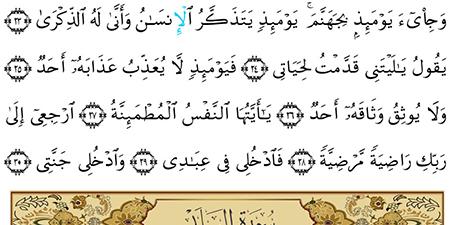 وَجِا۟يٓءَ يَوْمَئِذٍۭ بِجَهَنَّمَ ۚ يَوْمَئِذٍ يَتَذَكَّرُ ٱلْإِنسَٰنُ وَأَنَّىٰ لَهُ ٱلذِّكْرَىٰ ٢٣
يَقُولُ يَٰلَيْتَنِى قَدَّمْتُ لِحَيَاتِى ٢٤ فَيَوْمَئِذٍ لَّا يُعَذِّبُ عَذَابَهُۥٓ أَحَدٌ ٢٥
وَلَا يُوثِقُ وَثَاقَهُۥٓ أَحَدٌ ٢٦ يَٰٓأَيَّتُهَا ٱلنَّفْسُ ٱلْمُطْمَئِنَّةُ ٢٧ ٱرْجِعِىٓ إِلَىٰ
رَبِّكِ رَاضِيَةً مَّرْضِيَّةً ٢٨ فَٱدْخُلِى فِى عِبَٰدِى ٢٩ وَٱدْخُلِى جَنَّتِى ٣٠
سُورَةُ البَلَدِ